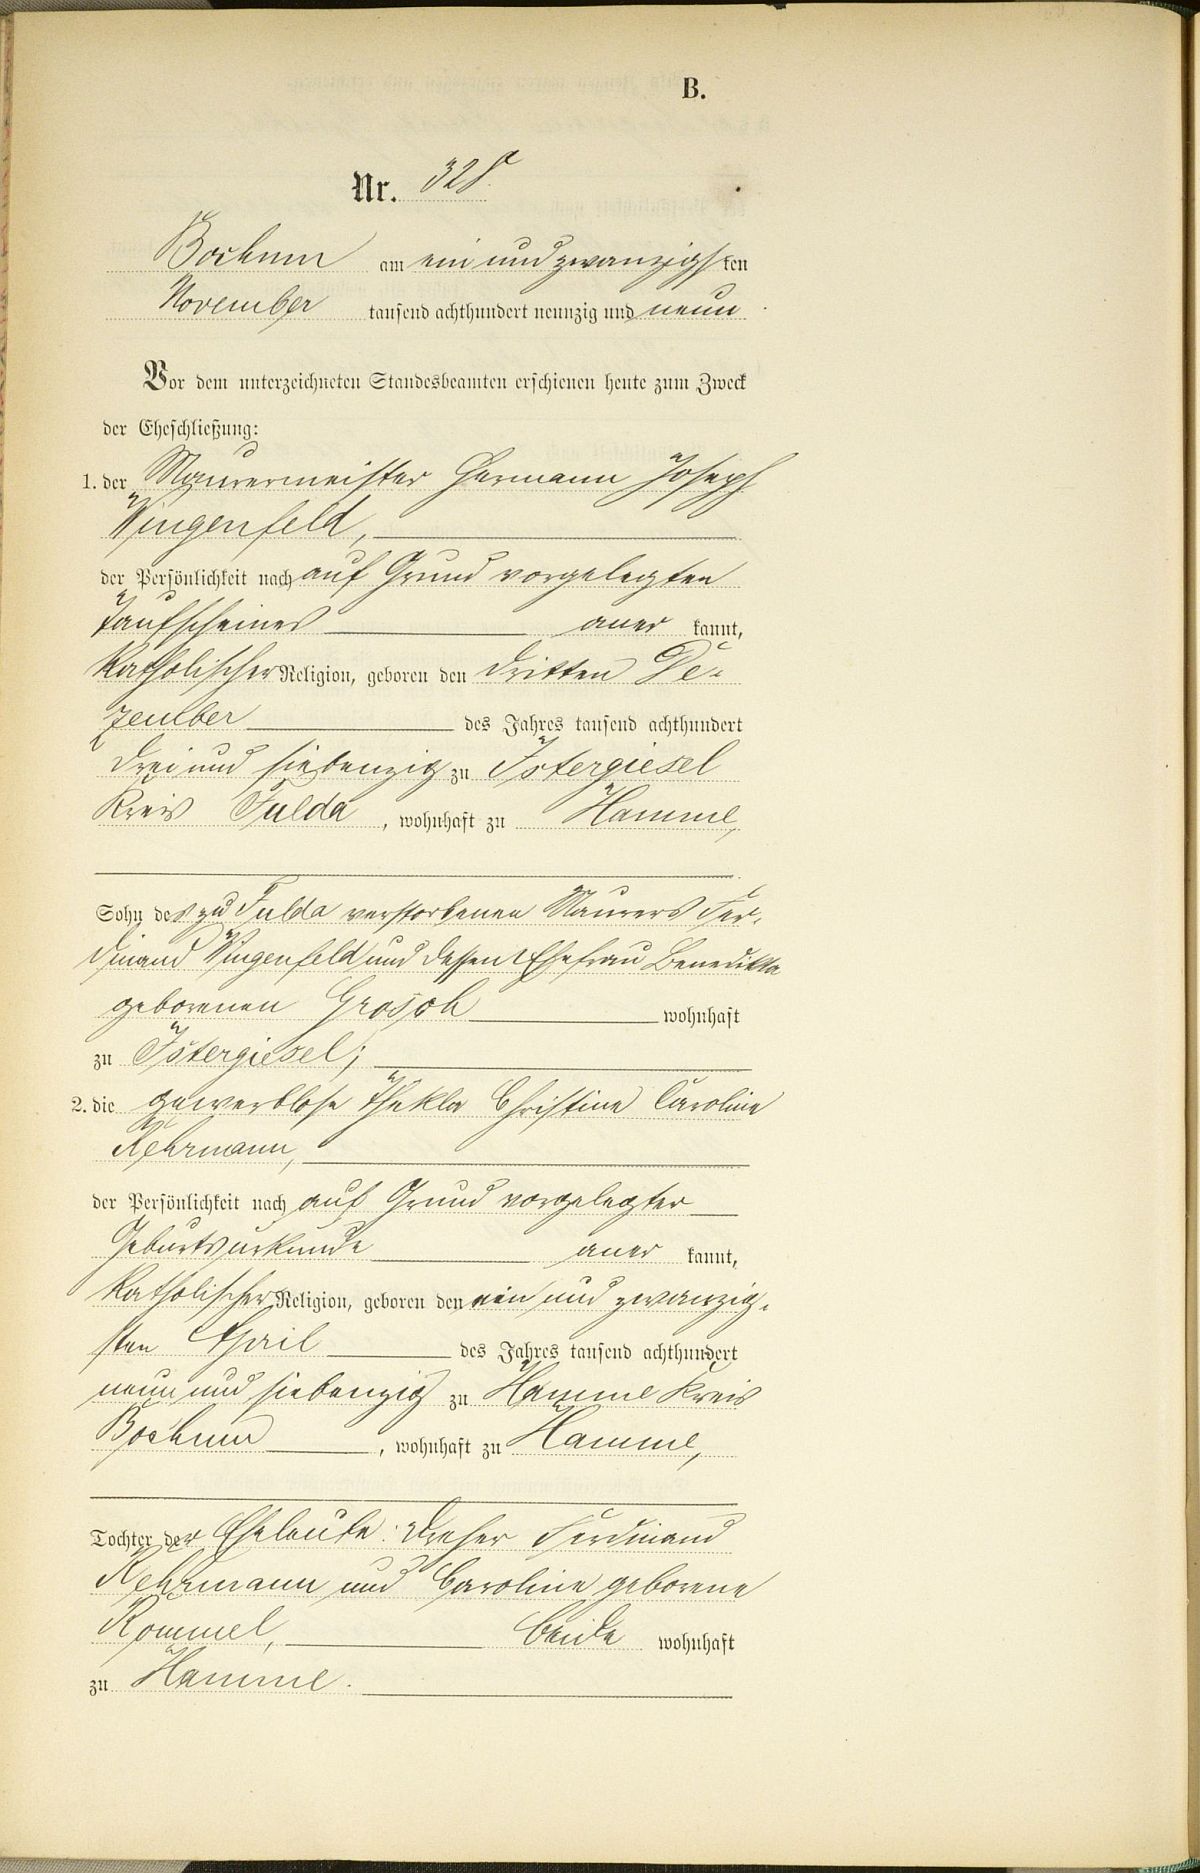 B.
Nr. 328.
Bochum am ein und zwanzigsten
November tausend achthundert neunzig und neun
Vor dem unterzeichneten Standesbeamten erschienen heute zum Zweck
der Eheschließung:
1. der Maurermeister Hermann Joseph
Wingenfeld,
der Persönlichkeit nach auf Grund vorgelegten
Taufscheines aner kannt,
katholischer Religion, geboren den dritten De-
zember des Jahres tausend achthundert
drei und siebenzig zu Istergiesel
Kreis Fulda, wohnhaft zu Hamme,
Sohn des zu Fulda verstorbenen Maurers Fer-
dinand Wingenfeld und dessen Ehefrau Benedikta
geborenen Grosch wohnhaft
zu Istergiesel;
2. die gewerblose Thekla Christine Caroline
Rehrmann,
der Persönlichkeit nach auf Grund vorgelegter
Geburtsurkunde aner kannt,
katholischer Religion, geboren den ein und zwanzig-
sten April des Jahres tausend achthundert
neun und siebenzig zu Hamme Kreis
Bochum, wohnhaft zu Hamme,
Tochter der Eheleute: Dreher Ferdinand
Rehrmann und Caroline geborene
Rommel, beide wohnhaft
zu Hamme.